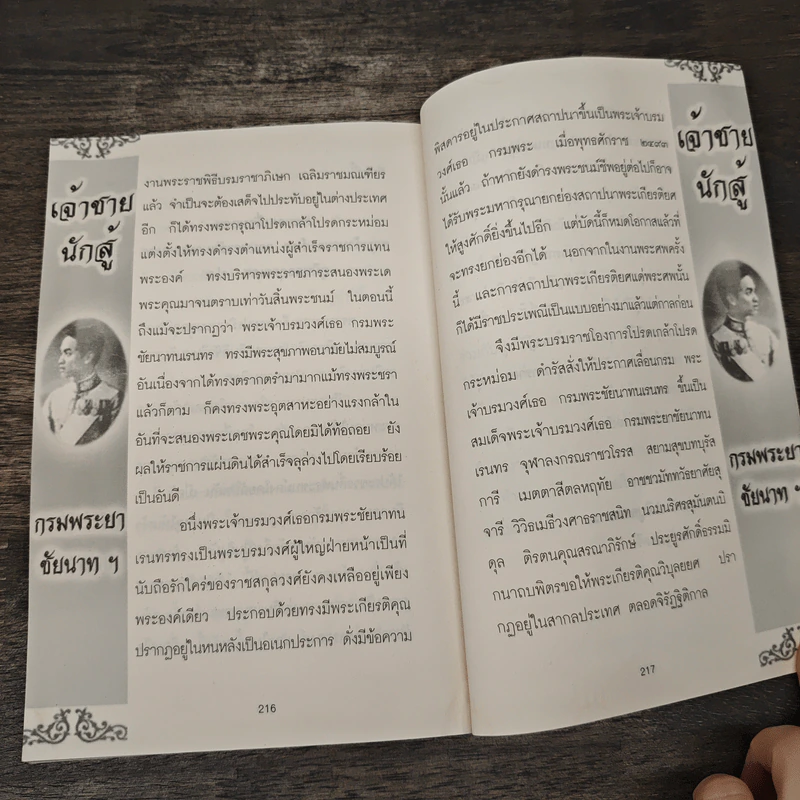 เจ้าชาย
นักสู้
กรมพระยา
ชัยนาท ฯ
งานพระราชพิธีบรมราชาภิเษก เฉลิมราชมณเฑียร
แล้ว จำเป็นจะต้องเสด็จไปประทับอยู่ในต่างประเทศ
อีก ก็ได้ทรงพระกรุณาโปรดเกล้าโปรดกระหม่อม
แต่งตั้งให้ทรงดำรงตำแหน่งผู้สำเร็จราชการแทน
พระองค์ ทรงบริหารพระราชภาระสนองพระเด
พระคุณมาจนตราบเท่าวันสิ้นพระชนม์ ในตอนนี้
ถึงแม้จะปรากฏว่า พระเจ้าบรมวงศ์เธอ กรมพระ
ชัยนาทนเรนทร ทรงมีพระสุขภาพอนามัยไม่สมบูรณ์
อันเนื่องจากได้ทรงตรากตรำมามากแม้ทรงพระชรา
แล้วก็ตาม ก็คงทรงพระอุตสาหะอย่างแรงกล้าใน
อันที่จะสนองพระเดชพระคุณโดยมิได้ท้อถอย ยัง
ผลให้ราชการแผ่นดินได้สำเร็จลุล่วงไปโดยเรียบร้อย
เป็นอันดี
อนึ่งพระเจ้าบรมวงศ์เธอกรมพระชัยนาทน
เรนทรทรงเป็นพระบรมวงศ์ผู้ใหญ่ฝ่ายหน้าเป็นที่
นับถือรักใคร่ของราชสกุลวงศ์ยังคงเหลืออยู่เพียง
พระองค์เดียว ประกอบด้วยทรงมีพระเกียรติคุณ
ปรากฏอยู่ในหนหลังเป็นอเนกประการ ดั่งมีข้อความ
216
พิสดารอยู่ในประกาศสถาปนาขึ้นเป็นพระเจ้าบรม
วงศ์เธอ กรมพระ เมื่อพุทธศักราช ๒๔๙๓
นั้นแล้ว ถ้าหากยังดำรงพระชนม์ชีพอยู่ต่อไปก็อาจ
ได้รับพระมหากรุณายกย่องสถาปนาพระเกียรติยศ
ให้สูงศักดิ์ยิ่งขึ้นไปอีก แต่บัดนี้ก็หมดโอกาสแล้วที่
จะทรงยกย่องอีกได้ นอกจากในงานพระศพครั้ง
นี้ และการสถาปนาพระเกียรติยศแด่พระศพนั้น
ก็ได้มีราชประเพณีเป็นแบบอย่างมาแล้วแต่กาลก่อน
จึงมีพระบรมราชโองการโปรดเกล้าโปรด
กระหม่อม ดำรัสสั่งให้ประกาศเลื่อนกรม พระ
เจ้าบรมวงศ์เธอ กรมพระชัยนาทนเรนทร ขึ้นเป็น
สมเด็จพระเจ้าบรมวงศ์เธอ กรมพระยาชัยนาทน
เรนทร จุฬาลงกรณราชวโรรส สยามสุขบทบุรัส
การี เมตตาสีตลหฤทัย อาชชวมัททวัธยาศัยสุ
จารี วิวิธเมธีวงศาธราชสนิท นวมนริศรสุมันตนบิ
ดุล ติรตนคุณสรณาภิรักษ์ ประยูรศักดิ์ธรรมมิ
กนาถบพิตรขอให้พระเกียรติคุณวิบุลยยศ ปรา
กฏอยู่ในสากลประเทศ ตลอดจิรัฏฐิติกาล
217
เจ้าชาย
นักสู้
กรมพระยา
ชัยนาท ฯ